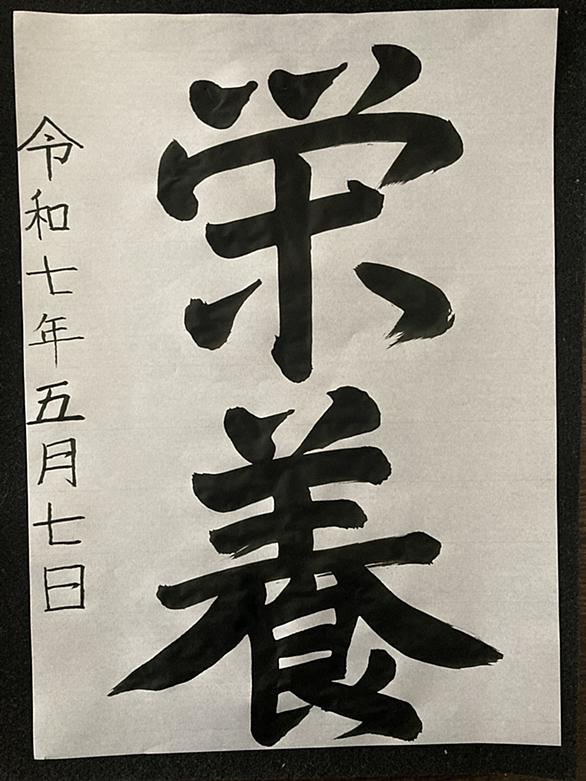 栄養
令和七年五月七日